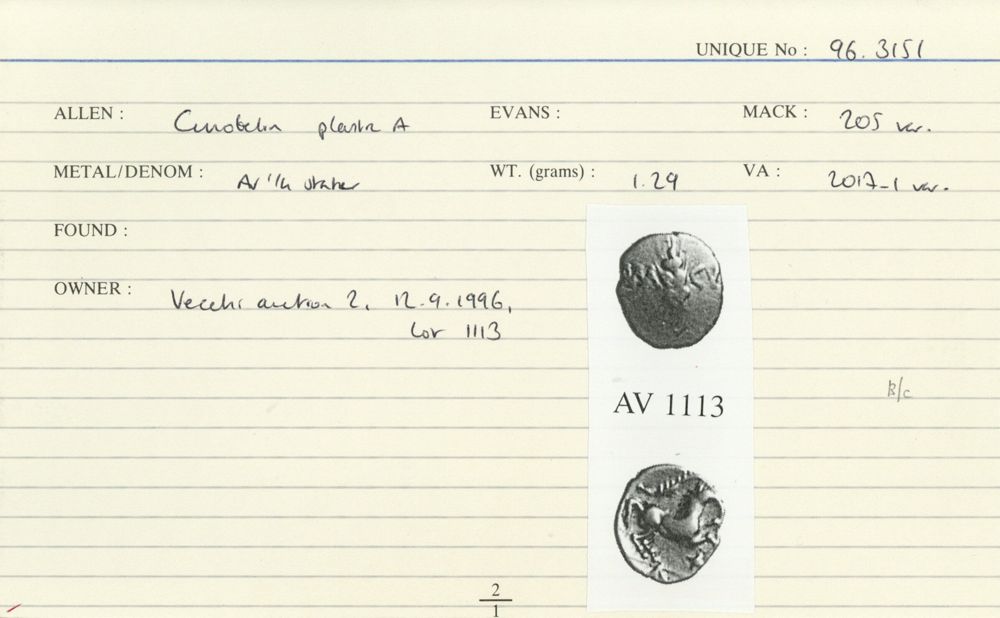 UNIQUE No : 96.3151
ALLEN : Cunobelin plastic A EVANS : MACK : 205 var.
METAL/DENOM : AV 1/4 stater WT. (grams) : 1.29 VA : 2017-1 var.
FOUND :
OWNER : Vecchi auction 2, 12.9.1996,
Lot 1113
AV 1113
B/C
2
1